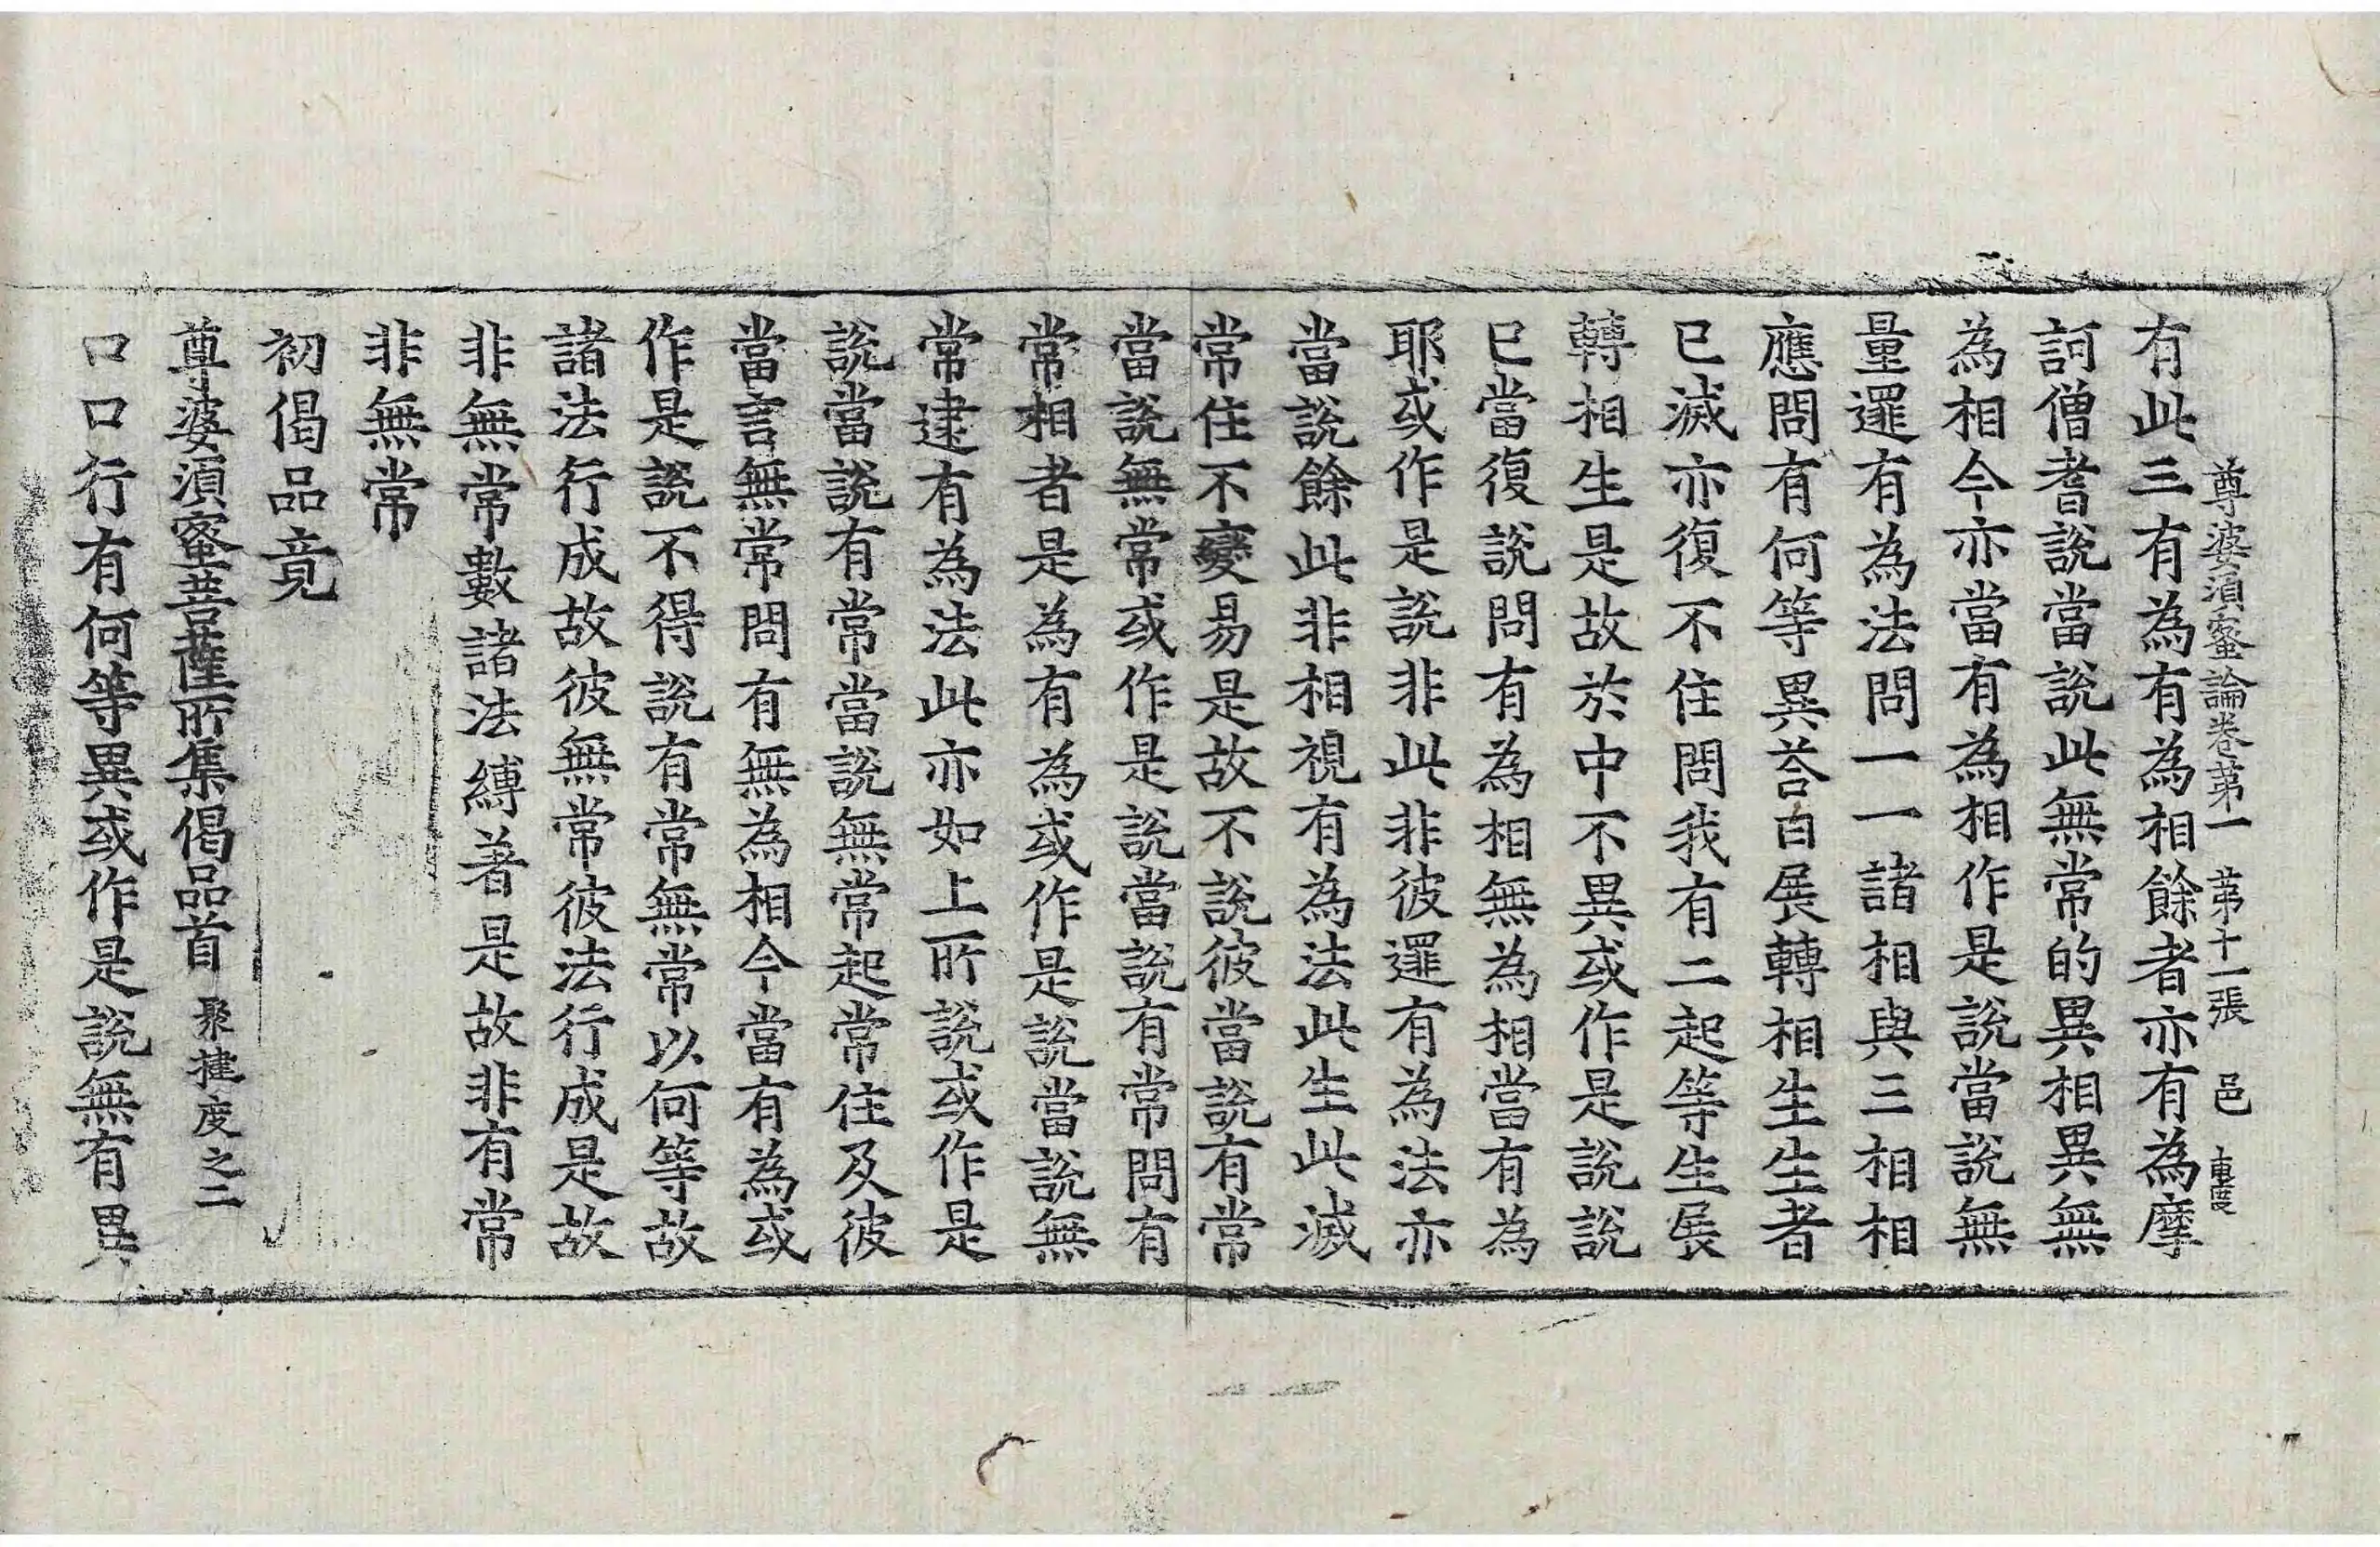 尊婆須蜜論卷第一 第十一張 邑
有此三有為有為相餘者亦有為摩
訶僧耆說當說此無常的異相異無
為相今亦當有為相作是說當說無
量邏有為法問一一諸相與三相相
應問有何等異荅自展轉相生生者
已滅亦復不住問我有二起等生展
轉相生是故於中不異或作是說說
已當復說問有為相無為相當有為
耶或作是說非此非彼邏有為法亦
當說餘此非相視有為法此生此滅
常住不變易是故不說彼當說有常
當說無常或作是說當說有常問有
常相者是為有為或作是說當說無
常逮有為法此亦如上所說或作是
說當說有常當說無常起常住及彼
當言無常問有無為相今當有為或
作是說不得說有常無常以何等故
諸法行成故彼無常彼法行成是故
非無常數諸法縛著是故非有常
非無常
初偈品竟
尊婆須蜜菩薩所集偈品首 聚揵度之二
口口行有何等異或作是說無有異